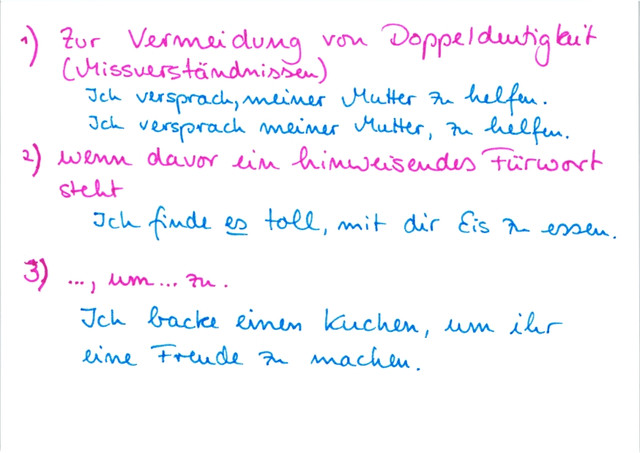 1) Zur Vermeidung von Doppeldeutigkeit
(Missverständnissen)
Ich versprach, meiner Mutter zu helfen.
Ich versprach meiner Mutter, zu helfen.
2) wenn davor ein hinweisendes Fürwort
steht
Ich finde es toll, mit dir Eis zu essen.
3) ..., um ... zu.
Ich backe einen Kuchen, um ihr
eine Freude zu machen.